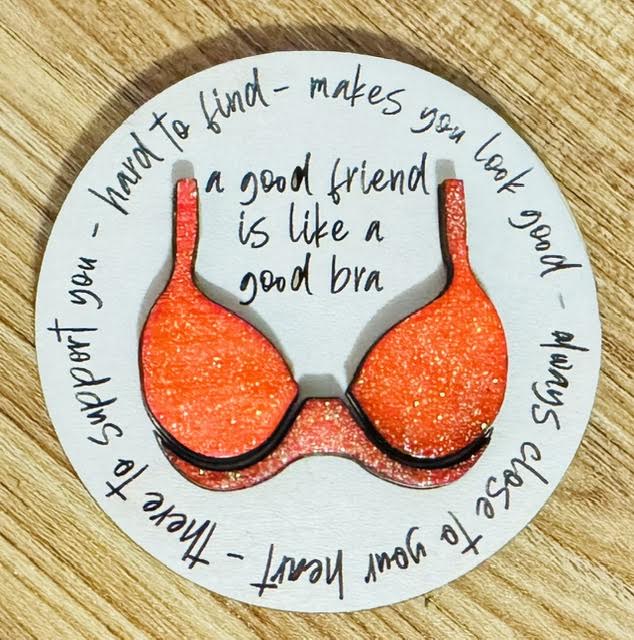 a good friend
is like a
good bra
hard to find - makes you look good - always close to your heart - there to support you -